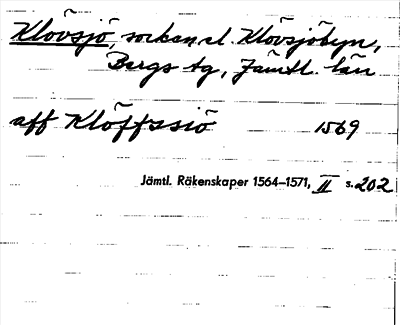 Klövsjö, socken el. Klövsjöbyn,
Bergs tg, Jämtl. län
aff Klöffssiö 1569
Jämtl. Räkenskaper 1564–1571, II s. 202